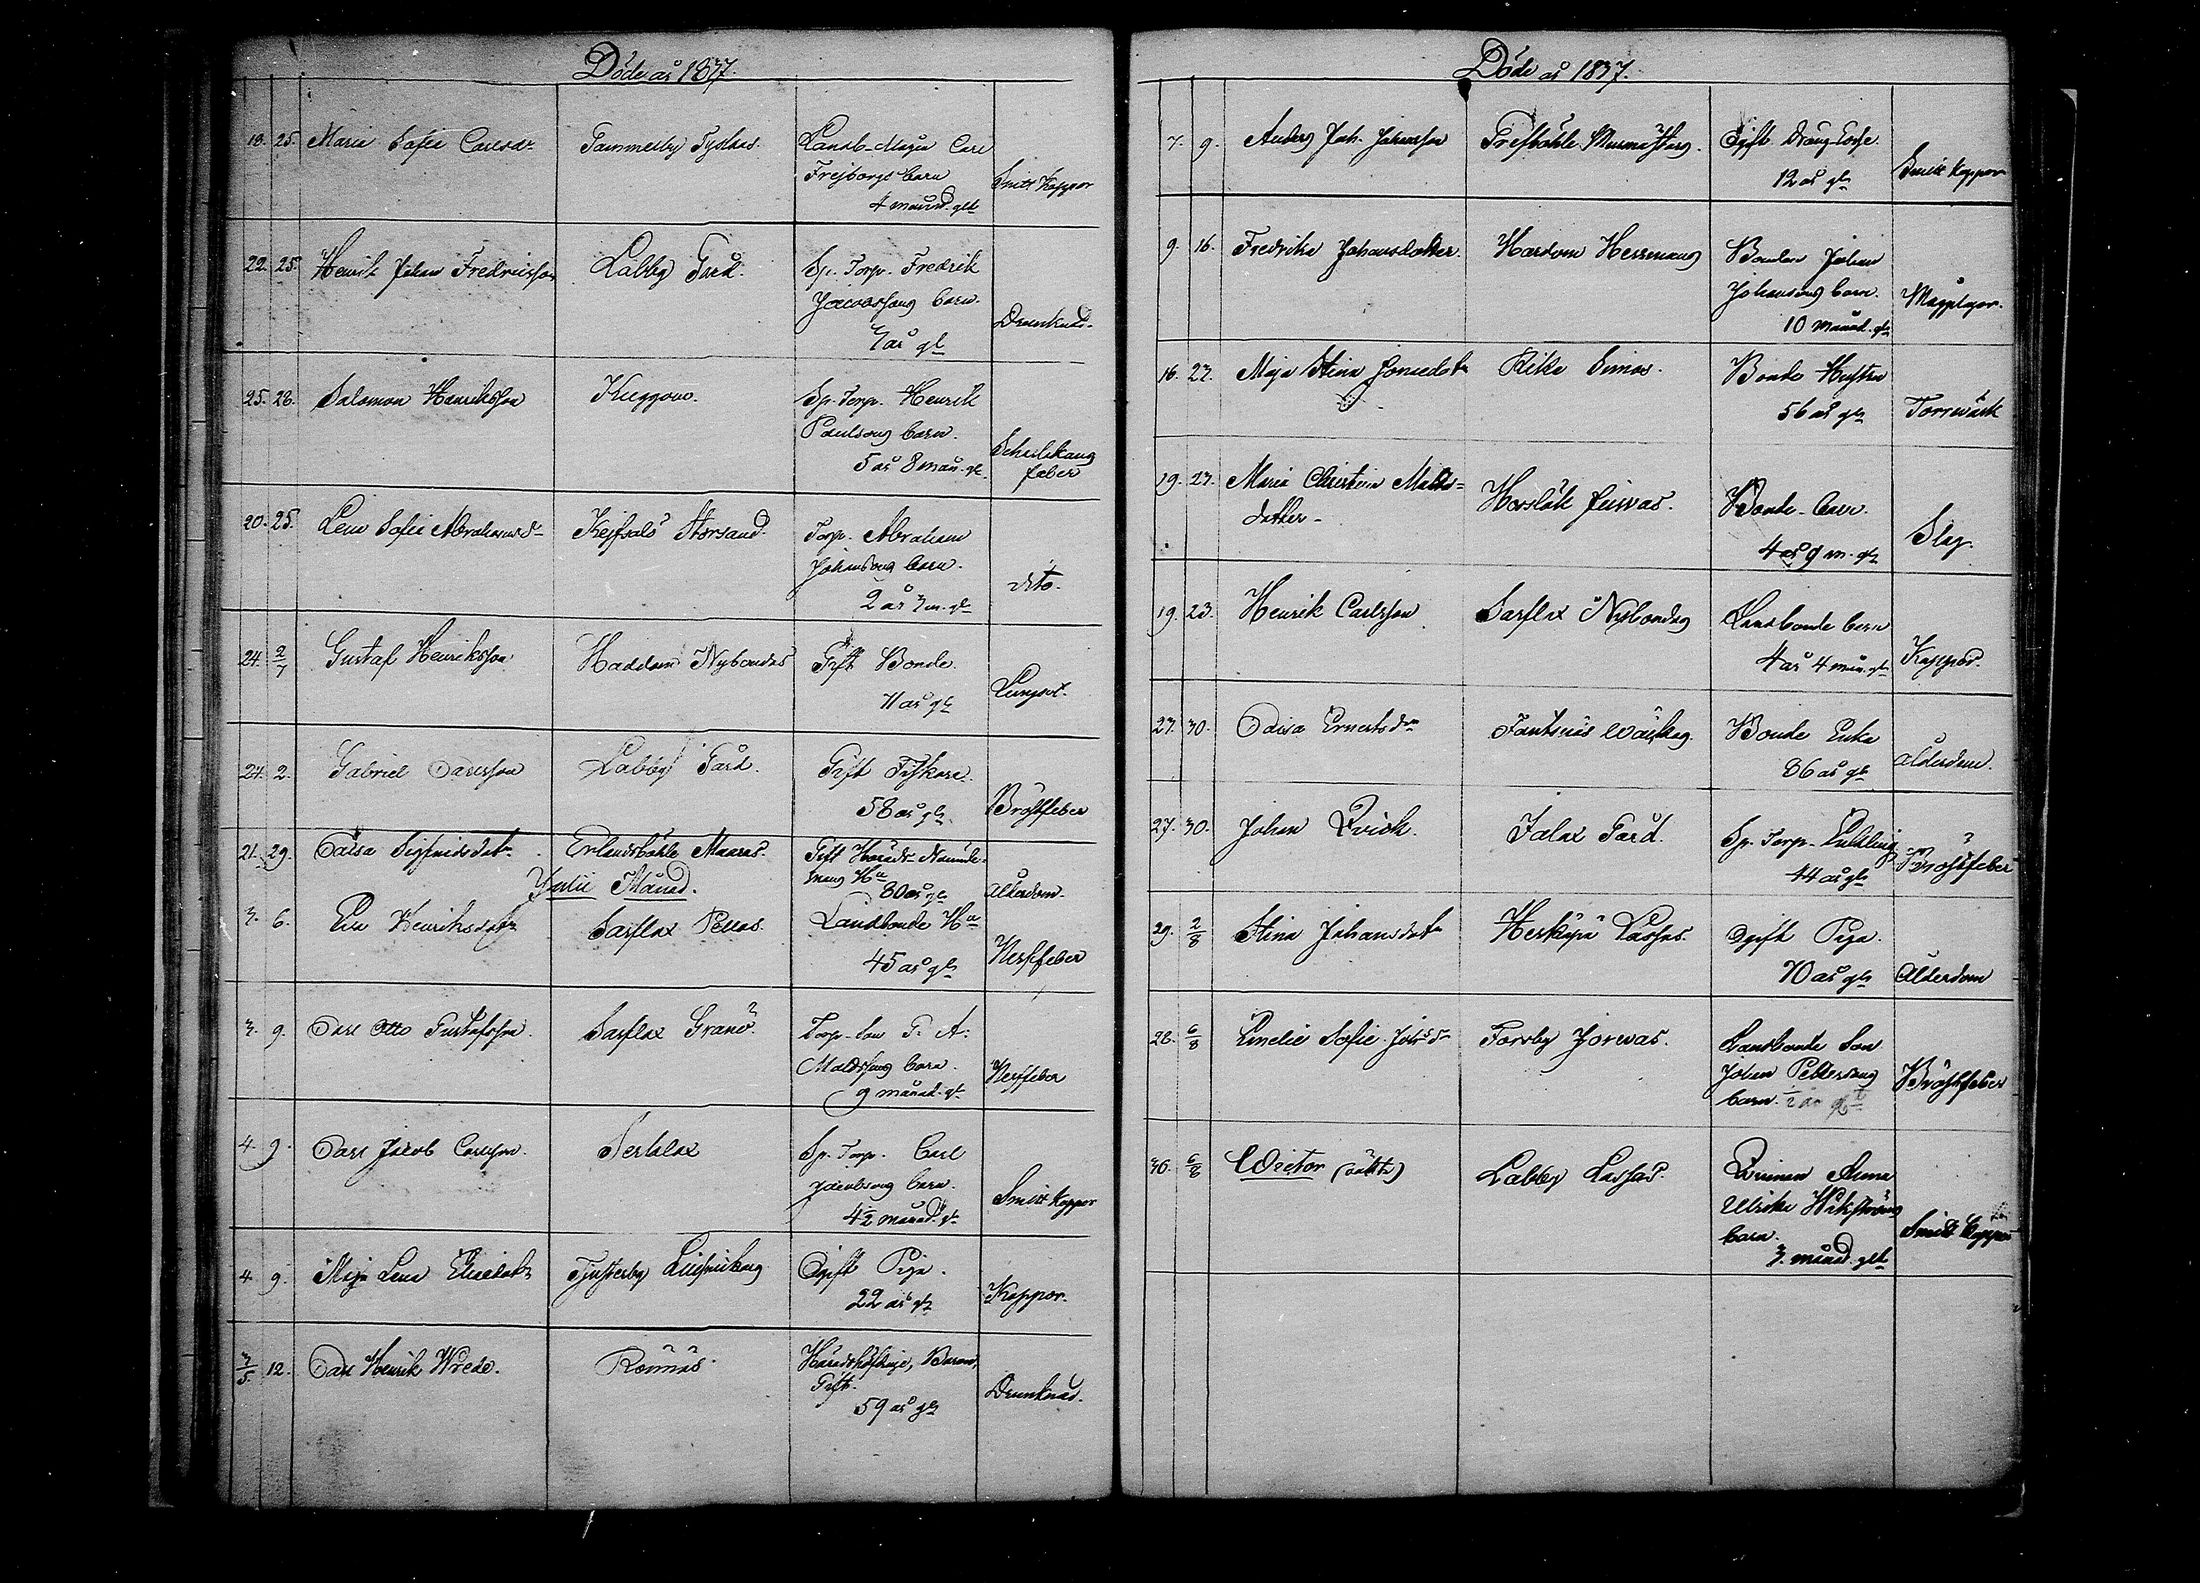 Döde år 1837.
18. 25. Maria Sofia Carlsdr Tammerby Tyskas. Landb. Mågen Carl
Frejborgs barn
4 månad. glt Smitt Koppor
22. 25. Henrik Johan Fredricsson Labby Gård. Sp. Torp. Fredrik
Jacobssons barn.
7 år gl Drunknad.
25. 28. Salomon Henriksson Kuggom. Sp. Torp. Henrik
Paulsons barn.
5 år 8 mån. gl. Scharlakans
feber
20. 25. Lena Sofia Abrahamsdr Kejsals Storsand. Torp. Abraham
Johansons barn.
2 år 3 m. gl. dito.
24. 2/7 Gustaf Henriksson Haddom Nybondas Gift Bonde.
71 år gl Lungsot.
27. 2. Gabriel Carlsson Labby Gård. Gift Fiskare.
58 år gl. Bröstfeber
21. 29. Caisa Sigfridsdotr Erlandsböhle Maaras. Gift Härads Nämnde-
mans Hu 80 år gl. Ålderdom.
Julii Månad.
3. 6. Eva Henriksdotr Sarflax Pellas. Landbonde Hu
45 år gl Nerffeber
3. 9. Carl Otto Gustafsson. Sarflax Granö. Torp. Son G. A.
Mattssons barn.
9 månad. gl. Nerffeber
4. 9. Carl Jacob Carlsson. Serklax Sp. Torp. Carl
Jacobsons barn.
4 1/2 månad. gl. Smitt Koppor
4. 9. Maja Lena Eliædotr Tjusterby Ogift Piga.
22 år gl Koppor.
3/5. 12. Carl Henrik Wrede. Rönnäs. Häradshöfdinge, Baron,
Gift.
59 år gl Drunknad.
Döde år 1837.
7. 9. Anders Joh. Johansson Gresböhle Murmästars. Ogift
12 år gl Smitt koppor
9. 16. Fredrika Johansdotter. Hardom Hessmans Bonden Johan
Johansons barn.
10 månad. gl. Mässlingor.
16. 22. Maja Stina Jonsedotr Rike Simos. Bonde Hustru
56 år gl Torrvärk
19. 23. Maria Christina Matts-
dotter Horslök Bonde barn.
4 år 9 m. gl. Slag.
19. 23. Henrik Carlsson Sarflax Nybondas Landbonde barn
4 år 4 mån. gl. Koppor.
27. 30. Caisa Ernertsdr Fantsnäs Bonde Enka
86 år gl Ålderdom.
27. 30. Johan Qvick. Isnäs Gård. Sp. Torp. Enkling
44 år gl Bröstfeber
29. 2/8 Stina Johansdotr Herköpä Lassas. Ogift Piga.
70 år gl Ålderdom
28. 6/8 Emelie Sofie Johsdr Forsby Jorwas. Landbonde Son
Johan Pettersons
barn. 1/2 år glt Bröstfeber
30. 6/8 Wictor (oäkta) Labby Lassas. Qvinnan Anna
Ulrika Wikströms
barn.
3. månad. glt Smitt koppor